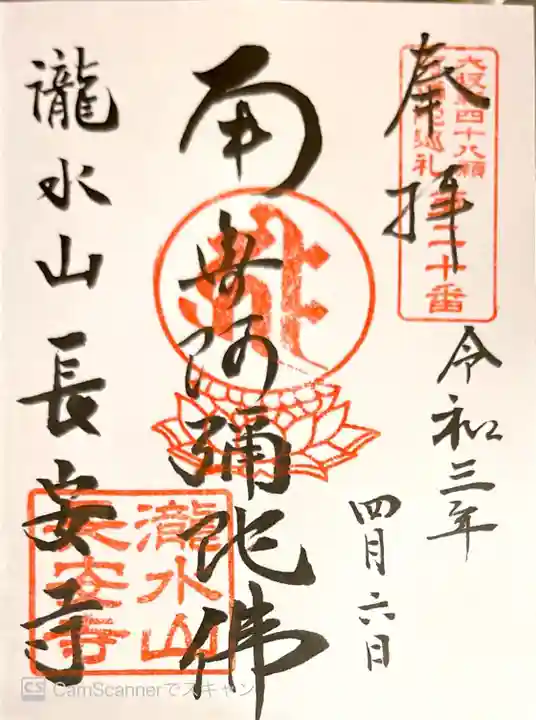 奉拝
四十八願
巡礼
第二十番
令和三年
四月六日
南無阿彌陀佛
瀧水山長安寺
瀧水山
長安寺
CS CamScannerでスキャン